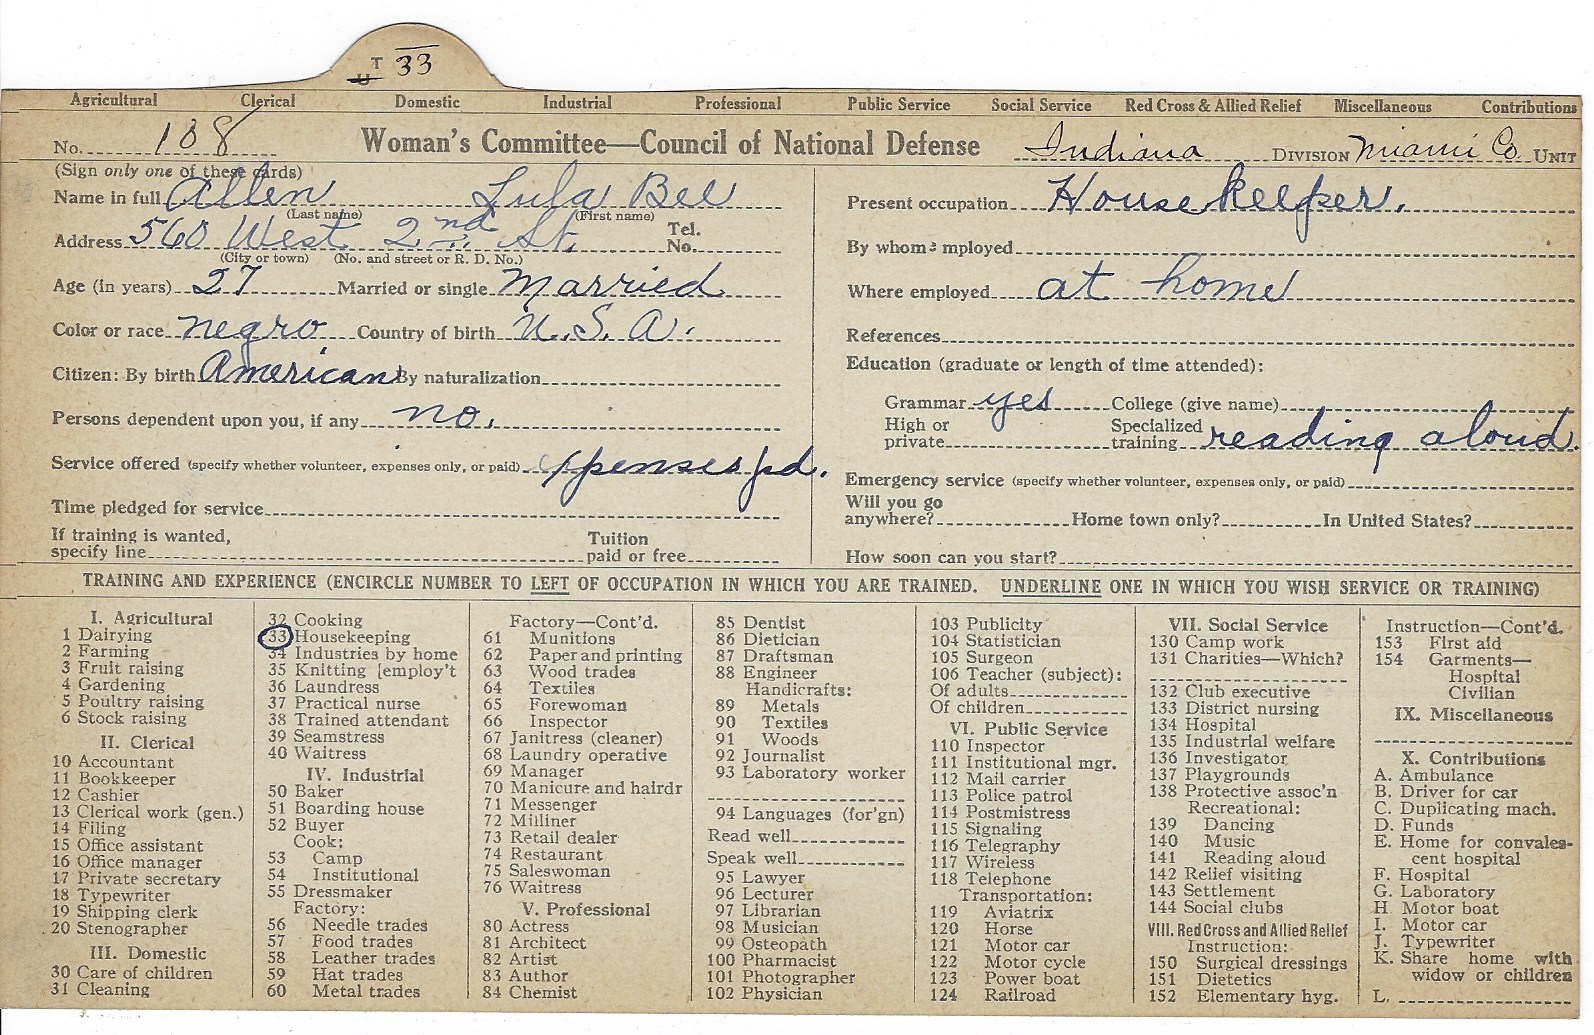 T 33
U
Agricultural Clerical Domestic Industrial Professional Public Service Social Service Red Cross & Allied Relief Miscellaneous Contributions
No. 108 Woman's Committee—Council of National Defense Indiana DIVISION Miami Co. UNIT
(Sign only one of these cards)
Name in full Allen Lula Bee
(Last name) (First name)
Address 560 West 2nd St. Tel. No.
(City or town) (No. and street or R. D. No.)
Age (in years) 27 Married or single Married
Color or race negro Country of birth U.S.A.
Citizen: By birth American By naturalization
Persons dependent upon you, if any no.
Service offered (specify whether volunteer, expenses only, or paid) Expenses pd.
Time pledged for service
If training is wanted,
specify line Tuition paid or free
Present occupation Housekeeper.
By whom employed
Where employed at home
References
Education (graduate or length of time attended):
Grammar yes College (give name)
High or private Specialized training reading aloud.
Emergency service (specify whether volunteer, expenses only, or paid)
Will you go
anywhere? Home town only? In United States?
How soon can you start?
TRAINING AND EXPERIENCE (ENCIRCLE NUMBER TO LEFT OF OCCUPATION IN WHICH YOU ARE TRAINED. UNDERLINE ONE IN WHICH YOU WISH SERVICE OR TRAINING)
I. Agricultural
1 Dairying
2 Farming
3 Fruit raising
4 Gardening
5 Poultry raising
6 Stock raising
II. Clerical
10 Accountant
11 Bookkeeper
12 Cashier
13 Clerical work (gen.)
14 Filing
15 Office assistant
16 Office manager
17 Private secretary
18 Typewriter
19 Shipping clerk
20 Stenographer
III. Domestic
30 Care of children
31 Cleaning
32 Cooking
33 Housekeeping
34 Industries by home
35 Knitting [employ't
36 Laundress
37 Practical nurse
38 Trained attendant
39 Seamstress
40 Waitress
IV. Industrial
50 Baker
51 Boarding house
52 Buyer
Cook:
53 Camp
54 Institutional
55 Dressmaker
Factory:
56 Needle trades
57 Food trades
58 Leather trades
59 Hat trades
60 Metal trades
Factory—Cont'd.
61 Munitions
62 Paper and printing
63 Wood trades
64 Textiles
65 Forewoman
66 Inspector
67 Janitress (cleaner)
68 Laundry operative
69 Manager
70 Manicure and hairdr
71 Messenger
72 Milliner
73 Retail dealer
74 Restaurant
75 Saleswoman
76 Waitress
V. Professional
80 Actress
81 Architect
82 Artist
83 Author
84 Chemist
85 Dentist
86 Dietician
87 Draftsman
88 Engineer
Handicrafts:
89 Metals
90 Textiles
91 Woods
92 Journalist
93 Laboratory worker
94 Languages (for'gn)
Read well
Speak well
95 Lawyer
96 Lecturer
97 Librarian
98 Musician
99 Osteopath
100 Pharmacist
101 Photographer
102 Physician
103 Publicity
104 Statistician
105 Surgeon
106 Teacher (subject):
Of adults
Of children
VI. Public Service
110 Inspector
111 Institutional mgr.
112 Mail carrier
113 Police patrol
114 Postmistress
115 Signaling
116 Telegraphy
117 Wireless
118 Telephone
Transportation:
119 Aviatrix
120 Horse
121 Motor car
122 Motor cycle
123 Power boat
124 Railroad
VII. Social Service
130 Camp work
131 Charities—Which?
132 Club executive
133 District nursing
134 Hospital
135 Industrial welfare
136 Investigator
137 Playgrounds
138 Protective assoc'n
Recreational:
139 Dancing
140 Music
141 Reading aloud
142 Relief visiting
143 Settlement
144 Social clubs
VIII. Red Cross and Allied Relief
Instruction:
150 Surgical dressings
151 Dietetics
152 Elementary hyg.
Instruction—Cont'd.
153 First aid
154 Garments—
Hospital
Civilian
IX. Miscellaneous
X. Contributions
A. Ambulance
B. Driver for car
C. Duplicating mach.
D. Funds
E. Home for convales-
cent hospital
F. Hospital
G. Laboratory
H Motor boat
I. Motor car
J. Typewriter
K. Share home with
widow or children
L.